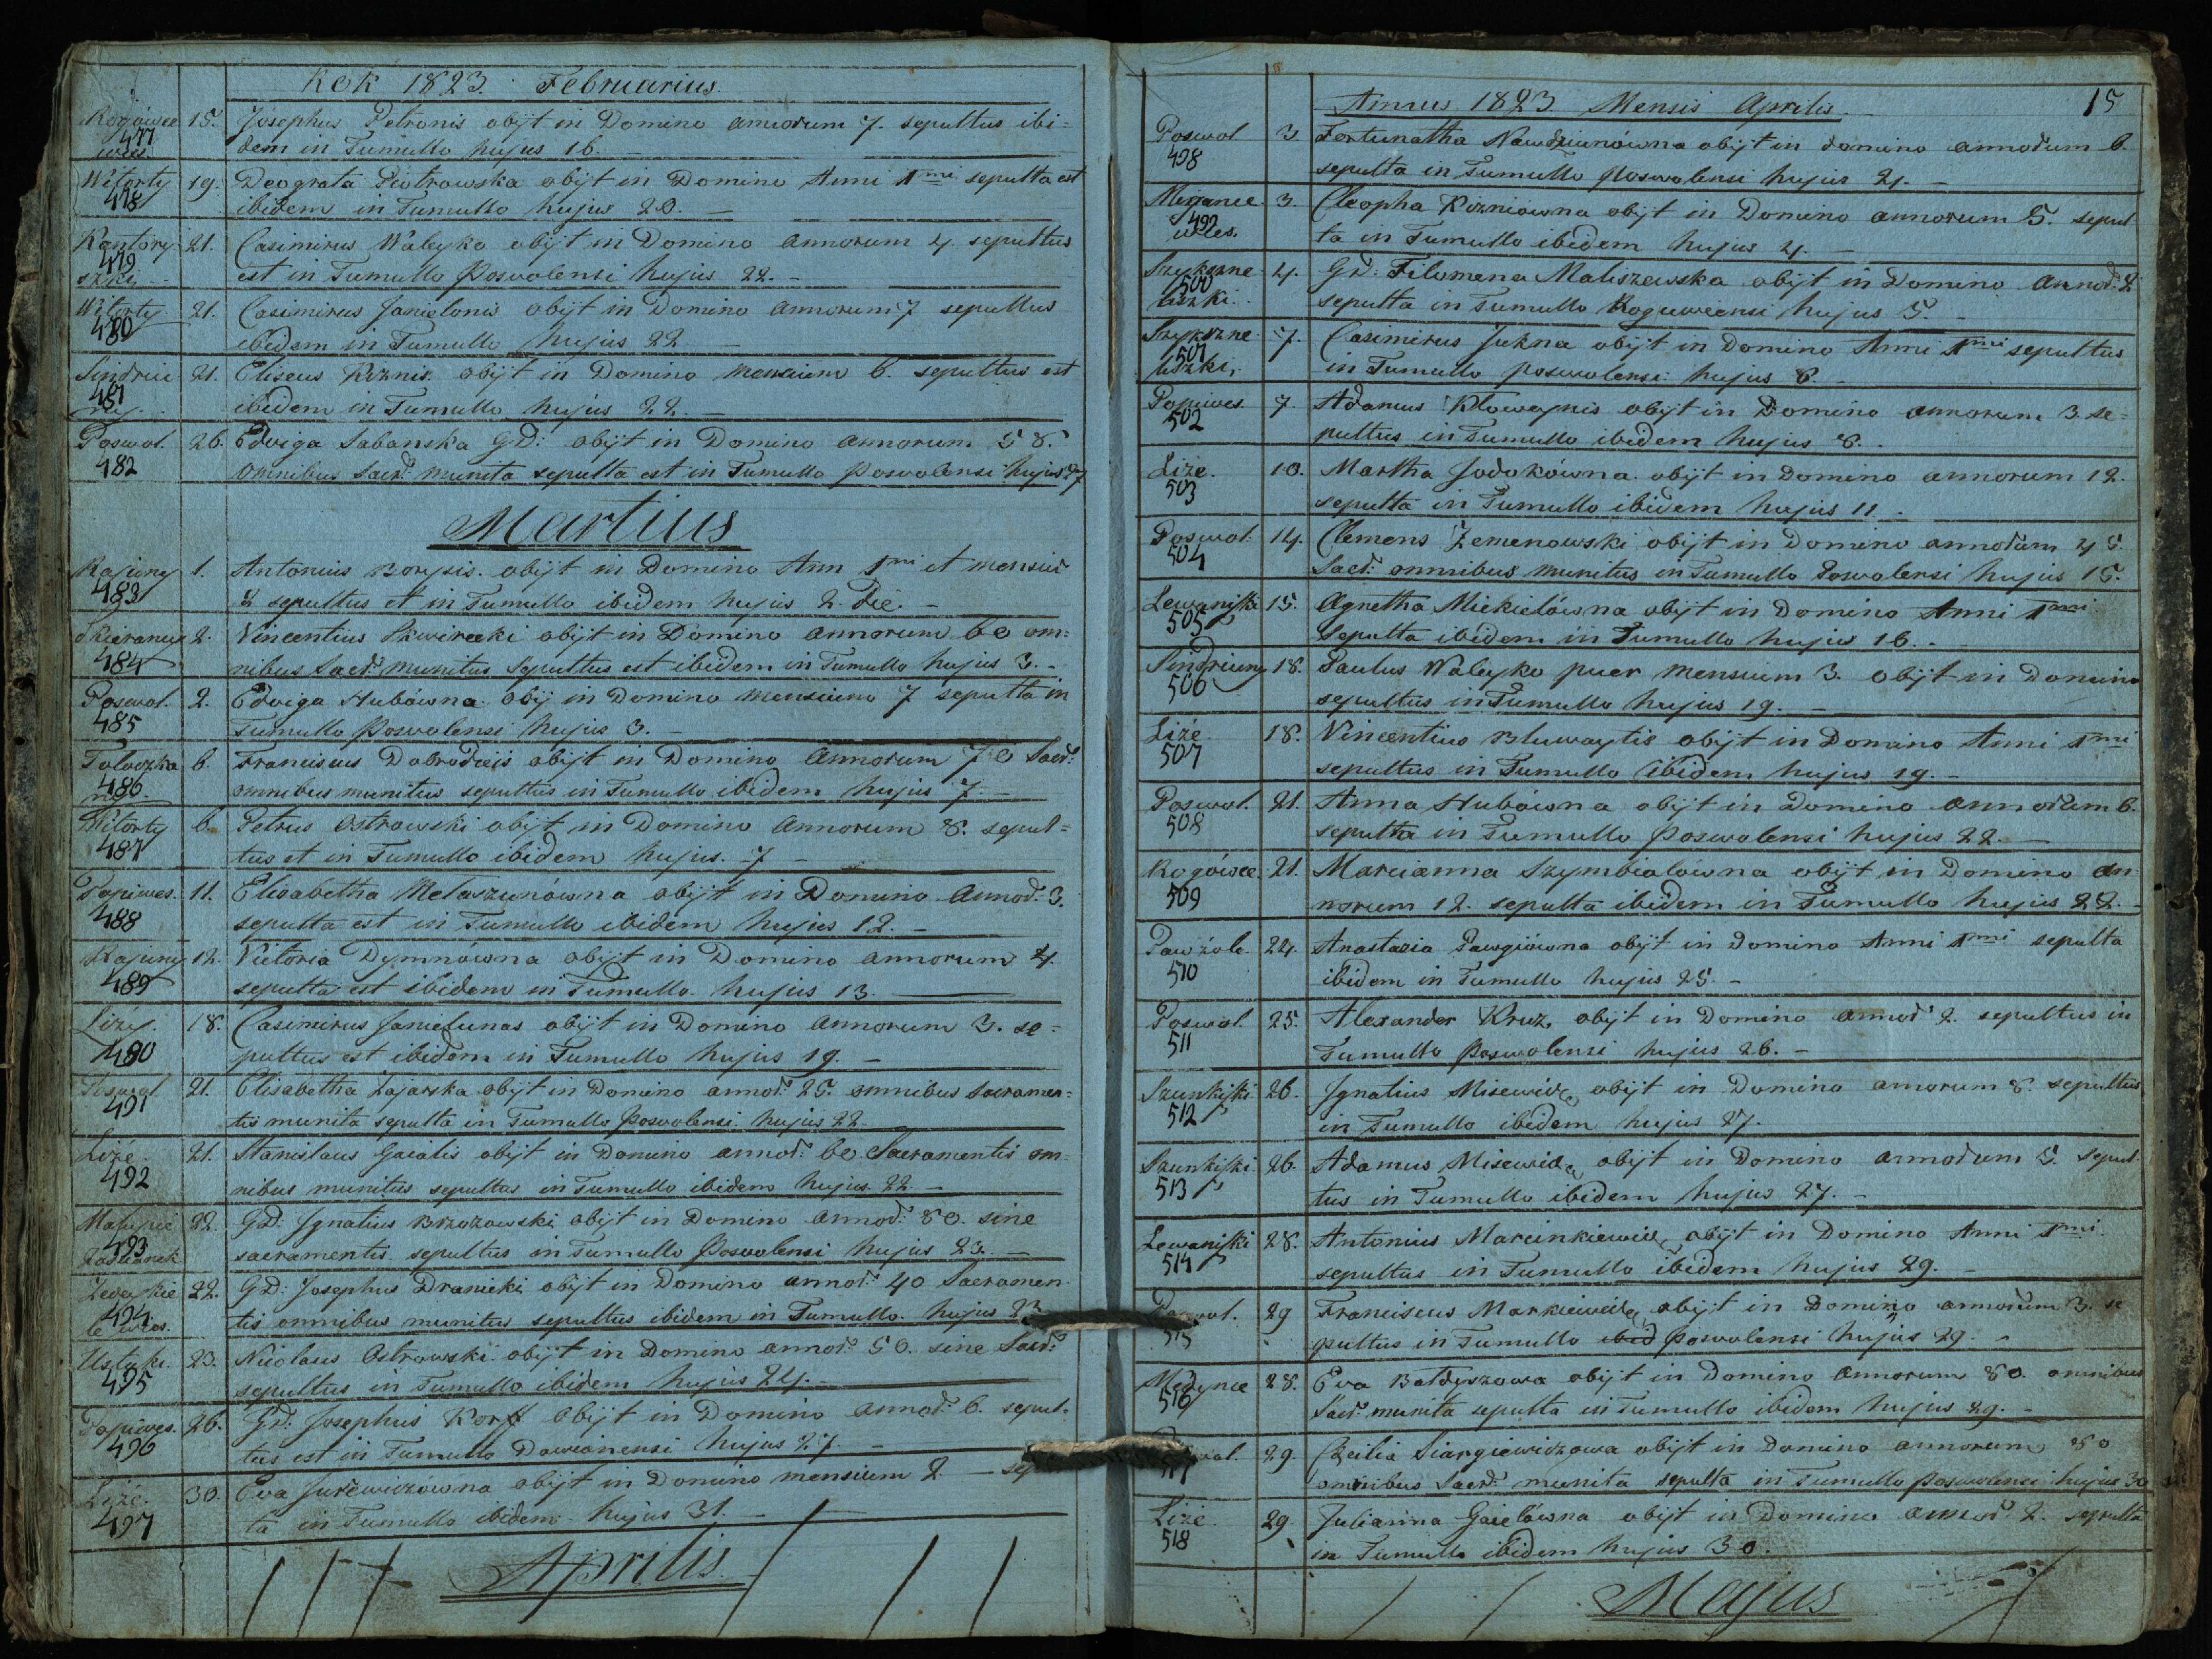 Rok 1823. Februarius.
Rogówce 15. Josephus Petronis obijt in Domino annorum 7. sepultus ibi=
477 wies. dem in Tumullo hujus 16.
Witorty 19. Deograta Piotrowska obijt in Domino Anni 1mi sepulta est
478 ibidem in Tumullo hujus 20.
Kantory 21. Casimirus Waleyko obijt in Domino annorum 4. sepultus
479 szki est in Tumullo Poswolensi hujus 22.
Witorty 21. Casimirus Janielonis obijt in Domino annorum 7 sepultus
480 ibidem in Tumullo hujus 22
Sindriu 21. Eliseus Kiznis obijt in Domino mensium 6. sepultus est
481 ny. ibidem in Tumullo hujus 22.
Poswol. 26. Edviga Sabanska GD: obijt in Domino annorum 58.
482 omnibus Sacr: munita sepulta est in Tumullo Poswolensi hujus 27
Martius
Rajuny 1. Antonius Borysis. obijt in Domino Ann 1mi et mensiu
483 2 sepultus et in Tumullo ibidem hujus 2. die.
2. Vincentius Skwirecki obijt in Domino annorum 60 om=
484 nibus Sacr: munitus sepultus est ibidem in Tumullo hujus 3.
Poswol. 2. Edviga Hubówna obij in Domino mensium 7 sepulta in
485 Tumullo Poswolensi hujus 3.
Toloczka 6. Franciscus Dobrodzieis obijt in Domino annorum 70 Sacr:
486 ny omnibus munitus sepultus in Tumullo ibidem hujus 7.
Witorty 6. Petrus Ostrowski obijt in Domino annorum 8. sepul=
487 tus et in Tumullo ibidem hujus. 7
Popiwes. 11. Elisabetha Metaszunówna obijt in Domino annor: 3.
488 sepulta est in Tumullo ibidem hujus 12.
Rajuny 12. Victoria Dymnówna obijt in Domino annorum 4.
489 sepulta est ibidem in Tumullo hujus 13.
Liży. 18. Casimirus Janielunas obijt in Domino annorum 3. se=
490 pultus est ibidem in Tumullo hujus 19.
Poswol. 21. Elisabetha Zajarska obijt in Domino annor: 25. omnibus sacramen=
491 tis munita sepulta in Tumullo Poswolensi hujus 22
Liże. 21. Stanislaus Gaialis obijt in Domino annor: 60 Sacramentis om
492 nibus munitus sepultus in Tumullo ibidem hujus 22.
22. GD: Ignatius Brzozowski obijt in Domino annor: 80. sine
493 sacramentis sepultus in Tumullo Poswolensi hujus 23.
22. GD: Josephus Dranicki obijt in Domino annor: 40 Sacramen
494 tis omnibus munitus sepultus ibidem in Tumullo hujus
Ustuki. 23. Nicolaus Ostrowski obijt in Domino annor: 50. sine Sacr:
495 sepultus in Tumullo ibidem hujus 24.
Popiwes. 26. GD: Josephus Korff obijt in Domino annor: 6. sepul=
496 tus est in Tumullo Dawianensi hujus 27.
Liże. 30. Eva Jurewiczówna obijt in Domino mensium 2. sep
497 ta in Tumullo ibidem hujus 31.
Aprilis.
Annus 1823 Mensis Aprilis 15
Poswol 3. Fortunatha Nawdziunówna obijt in domino annorum 6.
498 sepulta in Tumullo poswolensi hujus 4.
3. Cleopha Kizniówna obijt in Domino annorum 5. sepul
499 wies. ta in Tumullo ibidem hujus 4.
Szykszne 4. GD: Filomena Maliszewska obijt in Domino annor: 2
500 liszki. sepulta in Tumullo Roguweensi hujus 5.
Szykszne 7. Casimirus Jukna obijt in Domino Anni 1mi sepultus
501 liszki. in Tumullo poswolensi hujus 8.
Popiwes. 7. Adamus Klowaynis obijt in Domino annorum 3 se=
502 pultus in Tumullo ibidem hujus 8.
Liże. 10. Martha Jodokówna obijt in Domino annorum 12.
503 sepulta in Tumullo ibidem hujus 11.
Poswol. 14. Clemens Zemenowski obijt in Domino annorum 45.
504 Sacr: omnibus munitus in Tumullo Poswolensi hujus 15.
Lewaniszki 15. Agnetha Mickielówna obijt in Domino Anni 1mi
505 sepulta ibidem in Tumullo hujus 16.
Sindriuny 18. Paulus Waleyko puer mensium 3. obijt in Domino
506 sepultus in Tumullo hujus 19.
Liże. 18. Vincentius Bluwaytis obijt in Domino Anni 1mi
507 sepultus in Tumullo ibidem hujus 19.
Poswol. 21. Anna Hubówna obijt in Domino annorum 6.
508 sepulta in Tumullo Poswolensi hujus 22.
Rogówce. 21. Marcianna Szymbialówna obijt in Domino an
509 norum 12. sepulta ibidem in Tumullo hujus 22.
Pawżole. 24. Anastazia Pawgiówna obijt in Domino Anni 1mi sepulta
510 ibidem in Tumullo hujus 25.
Poswol. 25. Alexander Kruz, obijt in Domino annor: 2. sepultus in
511 Tumullo Poswolensi hujus 26.
Szunkiszki 26. Ignatius Misewicz obijt in Domino annorum 8. sepultus
512 in Tumullo ibidem hujus 27.
Szunkiszki 26. Adamus Misewicz obijt in Domino annorum 5. sepul
513 tus in Tumullo ibidem hujus 27.
Lewaniszki 28. Antonius Marcinkiewicz obijt in Domino Anni 1mi
514 sepultus in Tumullo ibidem hujus 29.
29 Franciscus Markiewicz obijt in Domino annorum 3. se
515 pultus in Tumullo ibid Poswolensi hujus 29.
28. Eva Baldyszowa obijt in Domino annorum 80. omnibus
516 Sacr: munita sepulta in Tumullo ibidem hujus 29.
29. Cecilia Siargiewiczowa obijt in Domino annorum 80
omnibus Sacr: munita sepulta in Tumullo poswolensi hujus 30
Liże. 29. Julianna Gaielówna obijt in Domino annor: 2. sepulta
518 in Tumullo ibidem hujus 30.
Majus